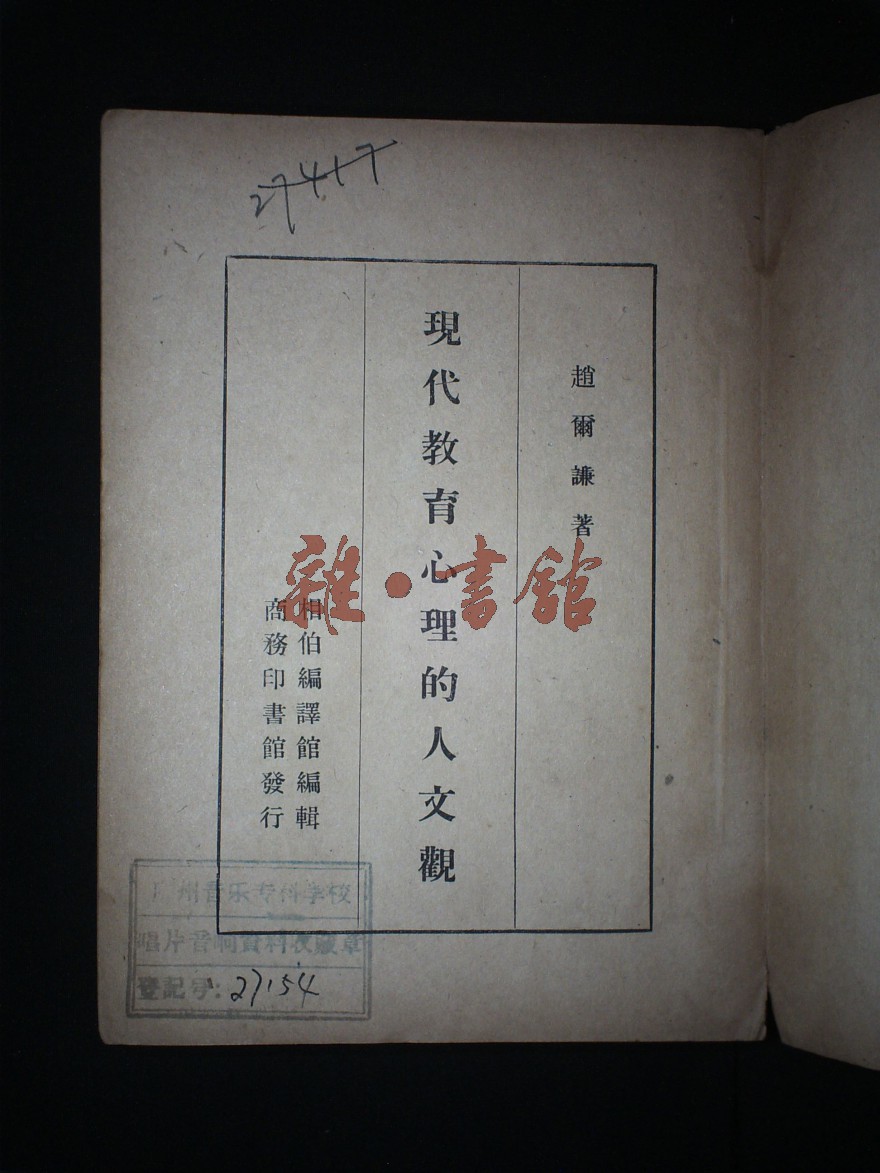 27417
趙爾謙著
現代教育心理的人文觀
相伯編譯館編輯
商務印書館發行
雜·書館
广州音乐专科学校
唱片音响資料收藏章
登記号:27154